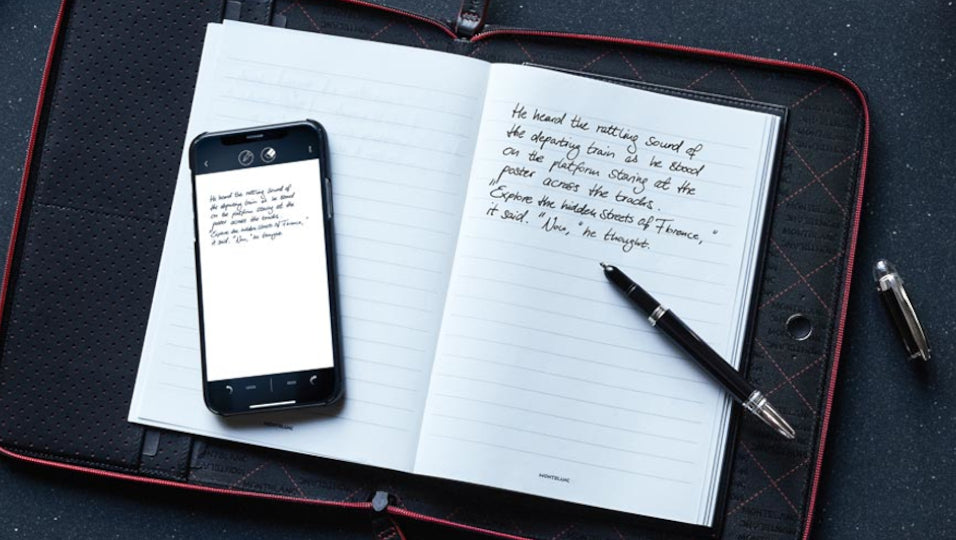 He heard the rattling sound of
the departing train as he stood
on the platform staring at the
poster across the tracks.
"Explore the hidden streets of Florence,"
it said. "Now," he thought.
MONTBLANC
He heard the rattling sound of
the departing train as he stood
on the platform staring at the
poster across the tracks.
"Explore the hidden streets of Florence,"
it said. "Now," he thought.
MONTBLANC